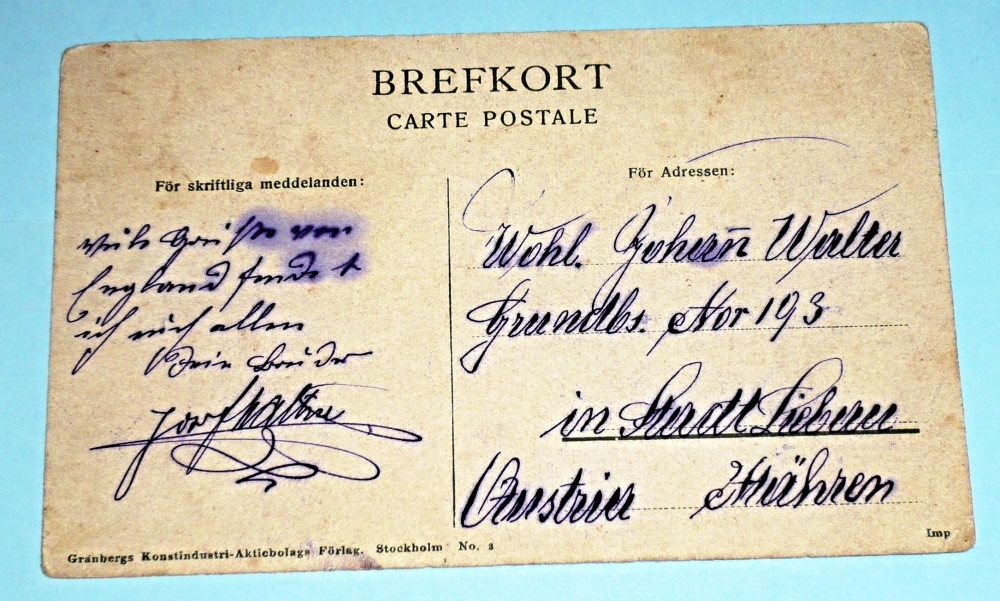 BREFKORT
CARTE POSTALE
För skriftliga meddelanden:
För Adressen:
viele Grüsse von
England sendet
ich euch allen
Dein Bruder
Josef Walter
Wohl. Johann Walter
Grundbs. Nor 193
in Stadt Liebau
Austria Mähren
Granbergs Konstindustri-Aktiebolags Förlag. Stockholm No. 3
Imp